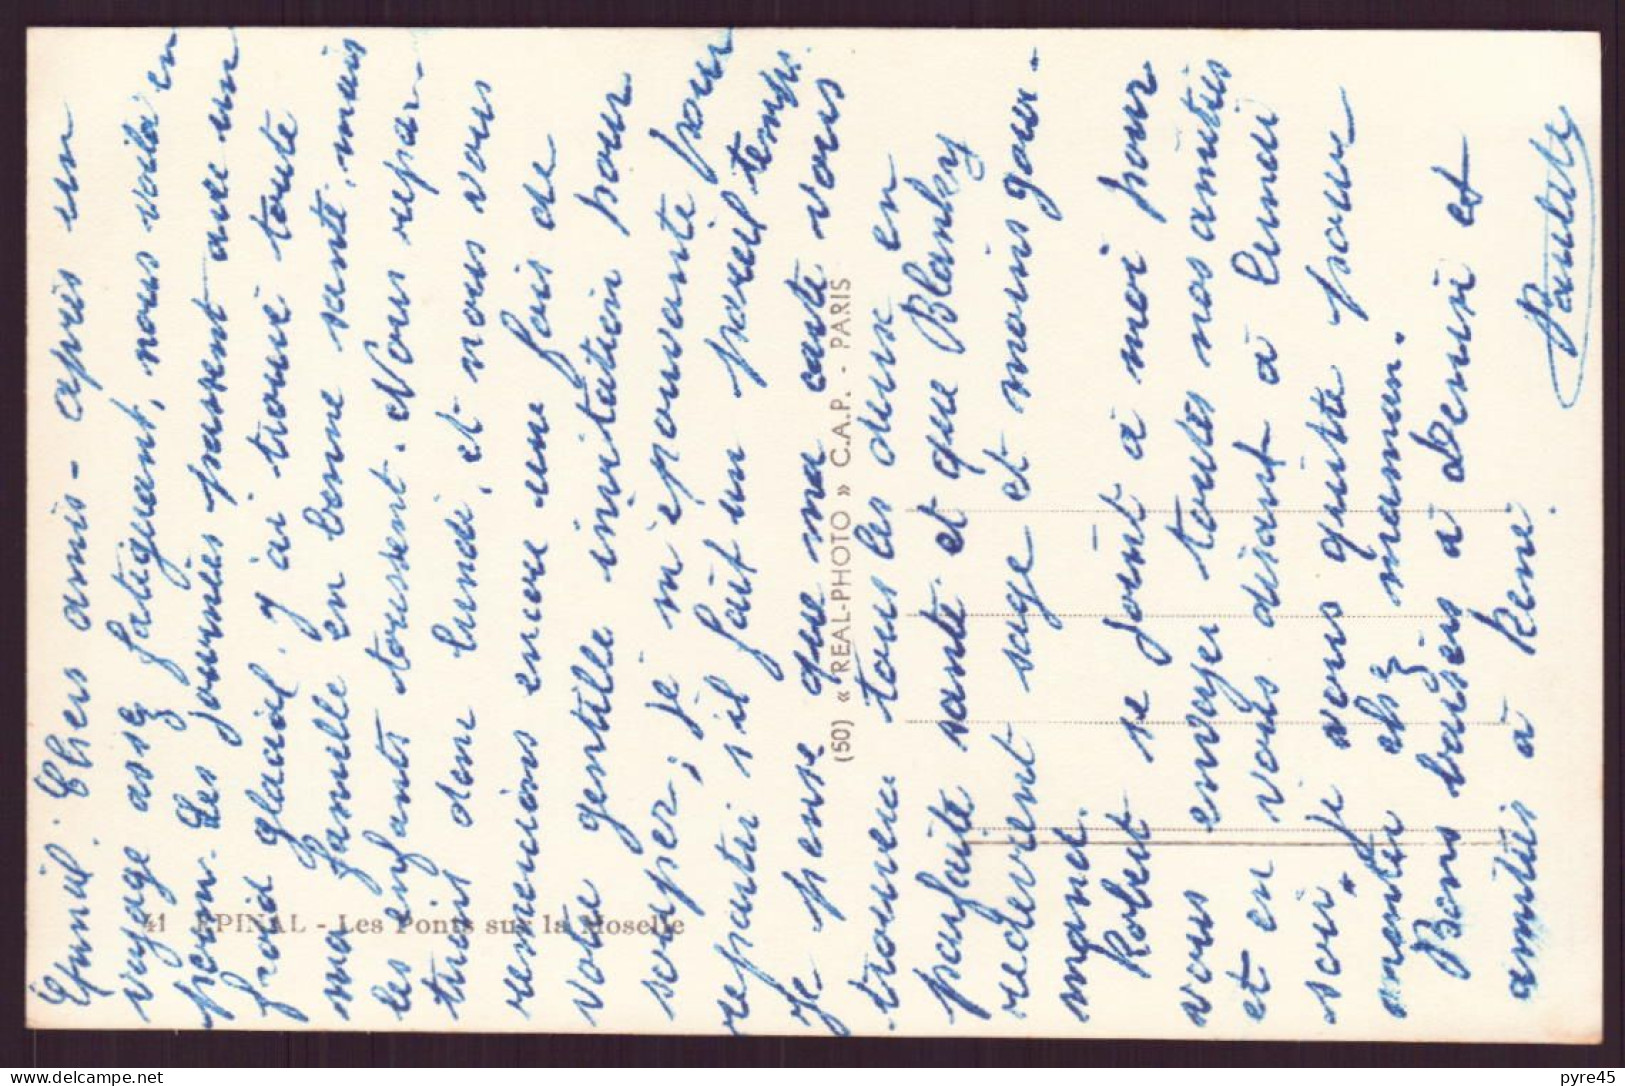 Epinal. Chers amis - après un
voyage assez fatiguant, nous voilà en
pour. Les journées passent avec un
froid glacial. J'ai trouvé toute
ma famille en bonne santé, mais
les enfants toussent. Nous repar-
tirons donc lundi, et nous vous
remercions encore une fois de
votre gentille invitation pour
souper, je m'épouvante pour
repartir s'il fait un pareil temps.
Je pense que ma carte vous
trouveu tous les deux en
parfaite santé et que Blanky
redevient sage et moins gour-
mand.
Robert se joint à moi pour
vous envoyer toutes nos amitiés
et en vous disant à lundi
soir, je vous quitte pour
monter chez maman.
Bons baisers à Denise et
amitiés à René.
Paulete
41 EPINAL - Les Ponts sur la Moselle
(50) « REAL-PHOTO » C.A.P. - PARIS
delcampe.net
pyre45